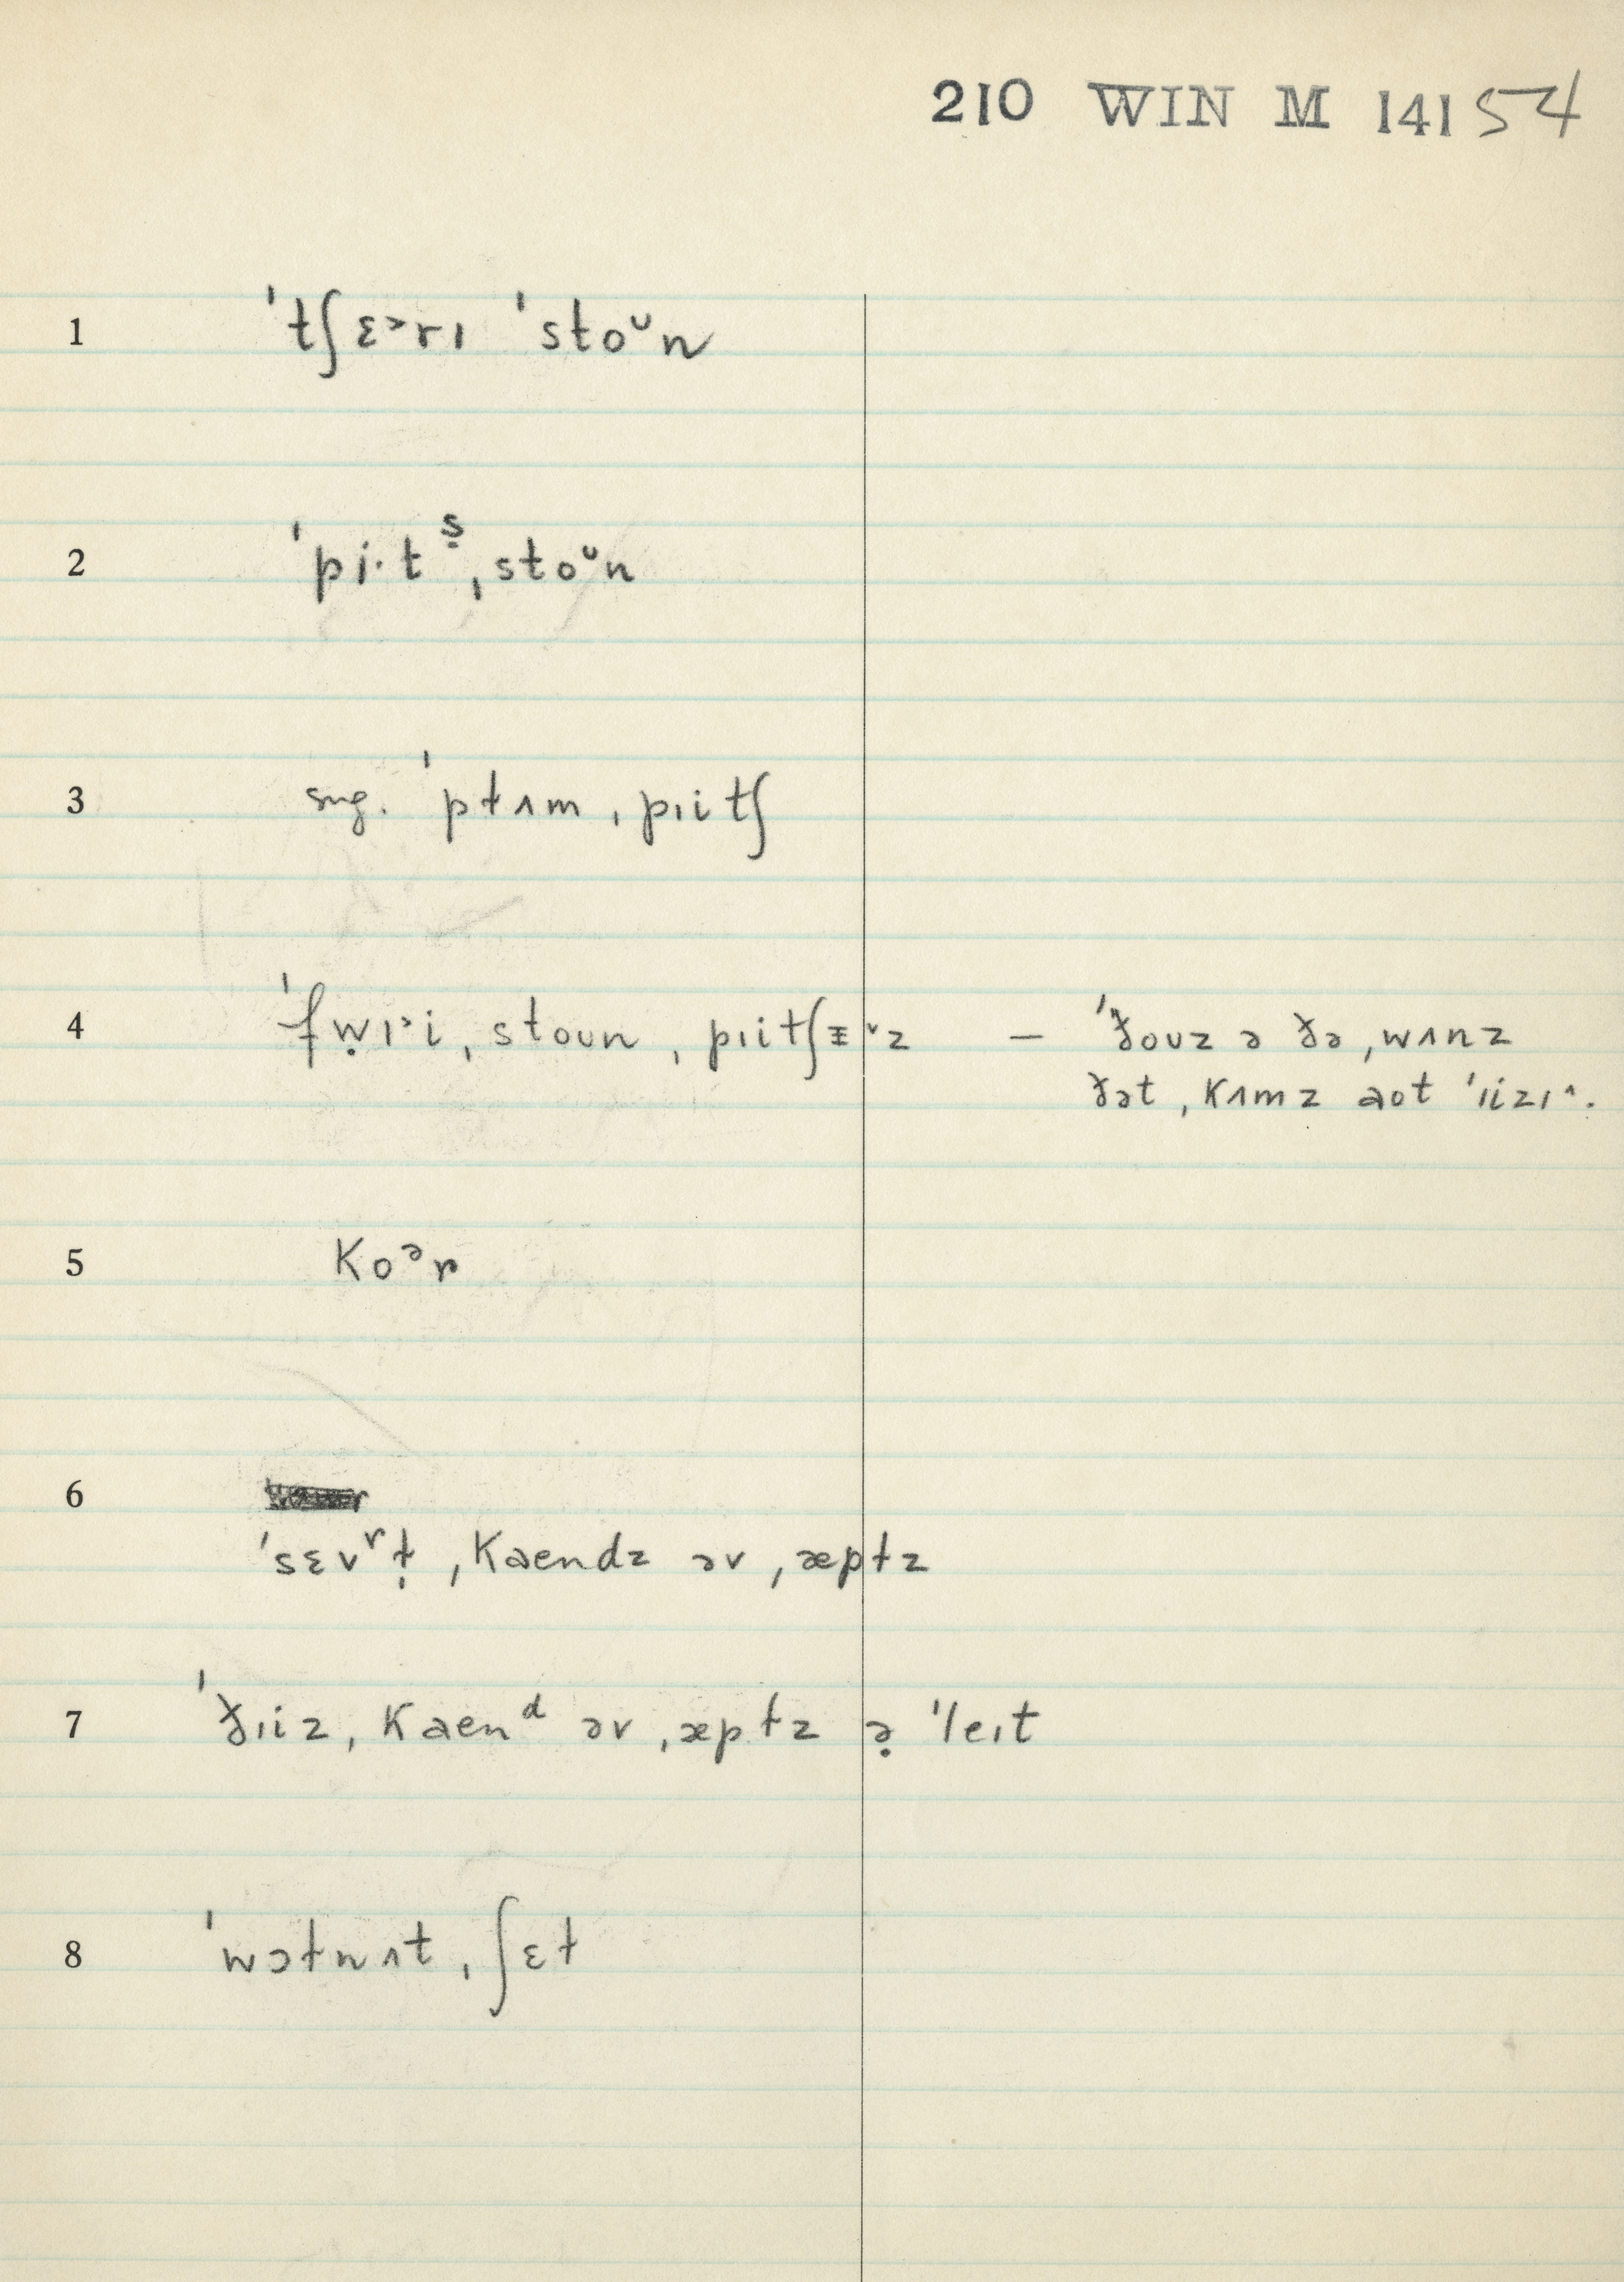 210 WIN M 141 54
1 ˈtʃɛ˃rɪ ˈstoᶷn
2 ˈpi·tˢ̣ ˌstoᶷn
3 sng. ˈpɫʌm ˌpɪitʃ
4 ˈfẉɪ˃i ˌstoun ˌpɪitʃᵻ˅z – ˈðouz ə ðə ˌwʌnz
ðət ˌkʌmz aot ˈɪizɪ^.
5 koᵊr
6
ˈsɛvʳɫ̣ ˌkaendz əv ˌæpɫz
7 ˈðɪiz ˌkaenᵈ əv ˌæpɫz ə̣ ˈleɪt
8 ˈwɔɫnʌt ˌʃɛɫ